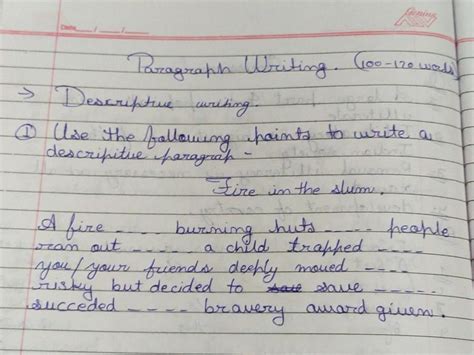 DATE
Paragraph Writing. (100-120 words
→ Descriptive writing.
① Use the following points to write a
descripitive paragraph -
Fire in the slum.
A fire ---- burning huts ---- people
ran out ---- a child trapped ----
you/your friends deeply moved ----
risky but decided to save ----
succeded ---- bravery award given.